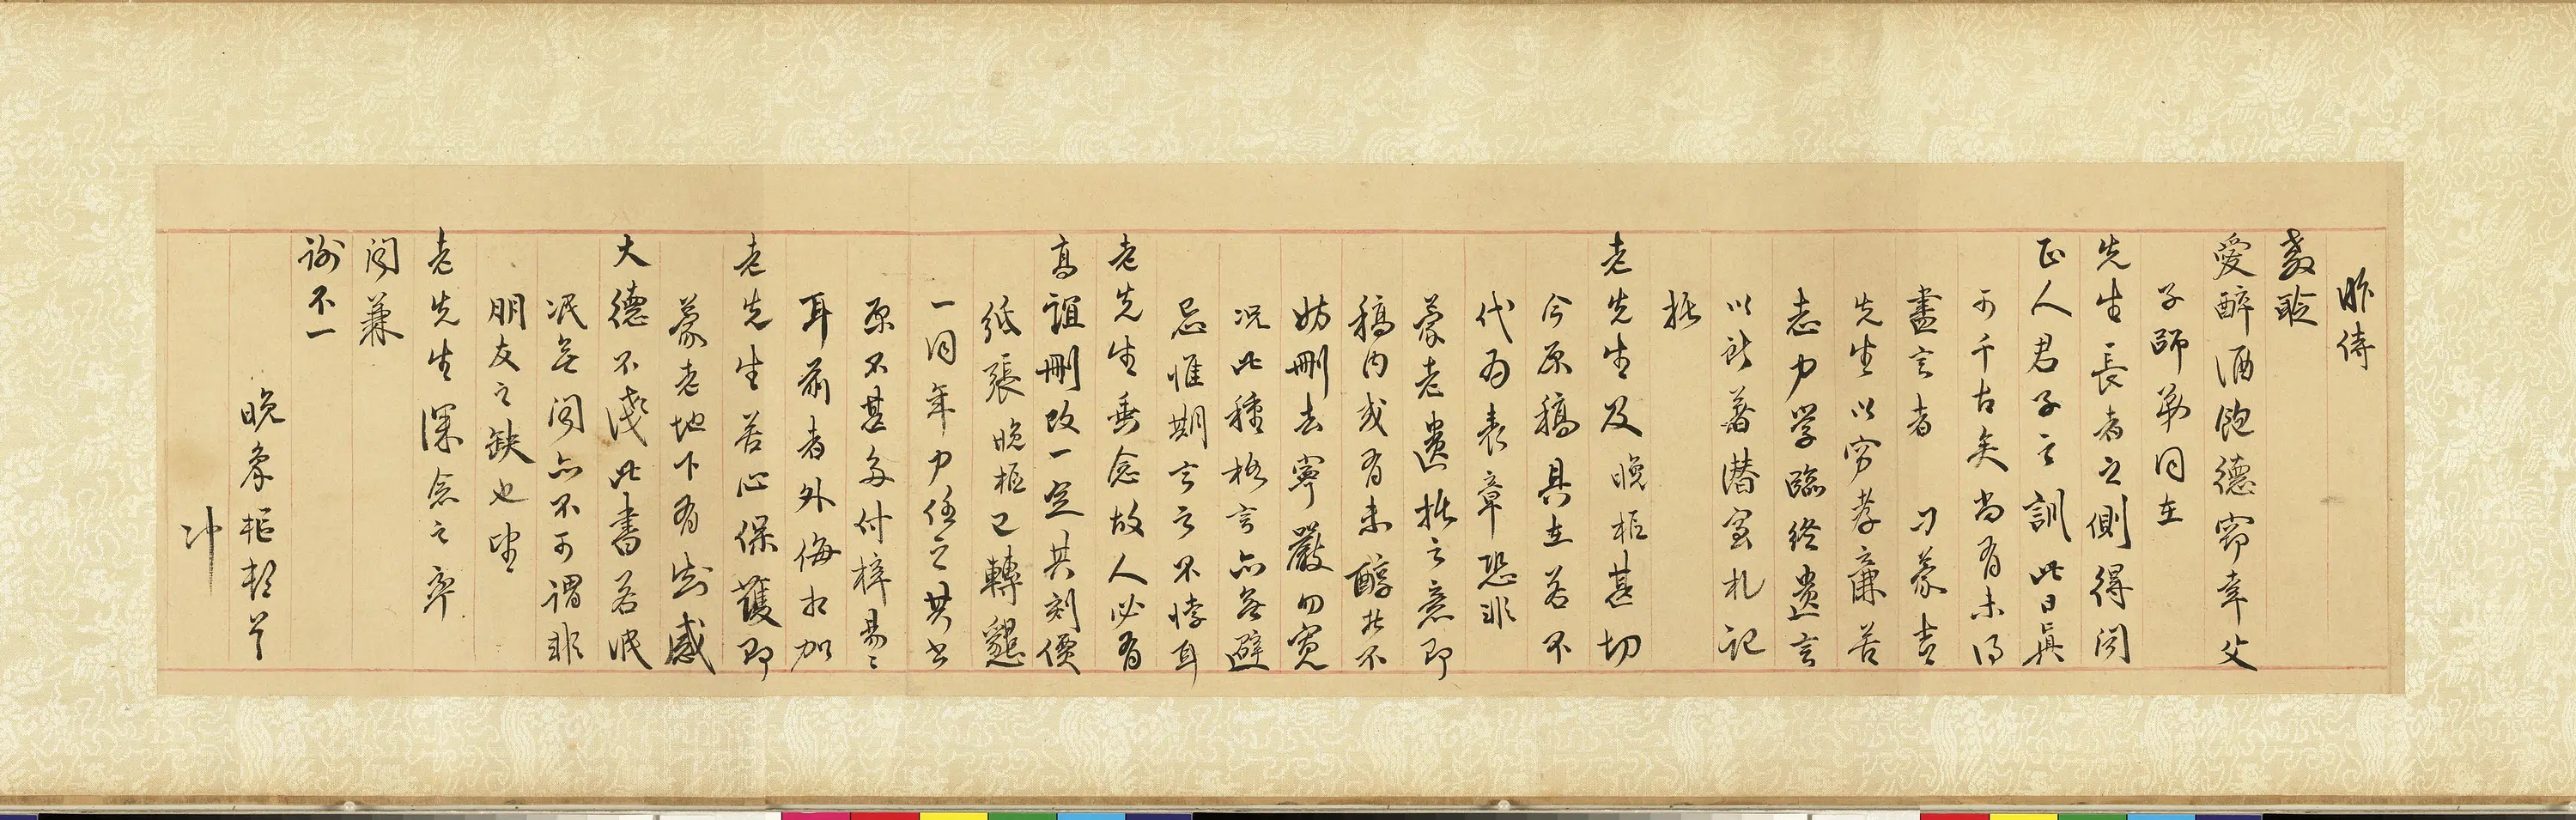 昨侍
教聆
愛醉酒飽德竊幸父
子師弟同在
先生長者之側得聞
正人君子之訓此日真
可千古矣尚有未得
盡言者 刁蒙吉
先生以窮孝廉苦
志力學臨終遺言
以所著潛室札記
托
老先生及晚柜甚切
今原稿具在若不
代為表章恐非
蒙老遺托之意即
稿內或有未醇在不
妨刪去寧嚴勿寬
況此種格言亦無避
忌惟期言之不悖耳
老先生垂念故人必有
高誼刪改一定其刻價
紙張晚柜已轉懇
一同年力任之其書
原不甚多付梓易易
耳前者外侮相加
老先生苦心保護即
蒙老地下有知感
大德不淺此書若泯
泯無聞亦不可謂非
朋友之缺也望
老先生深念之率
聞兼
謝不一
晚 柜頓首
冲